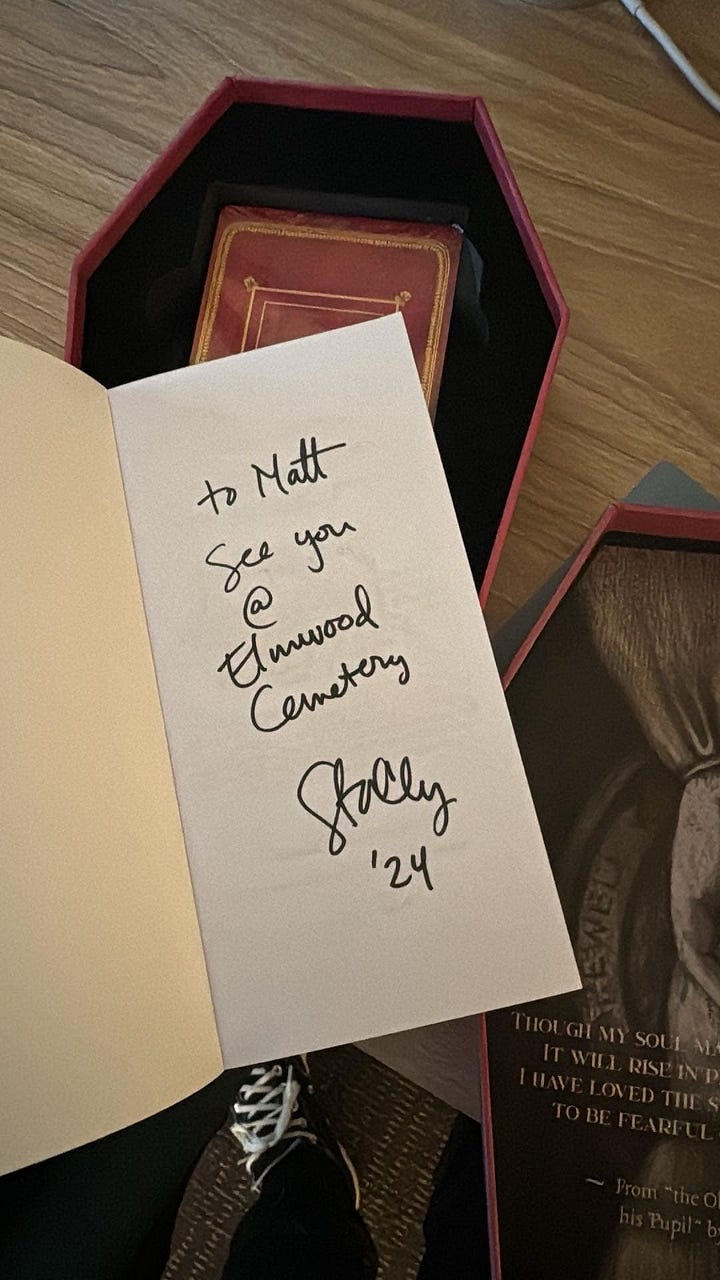 to Matt
See you
@
Elmwood
Cemetery
'24
THOUGH MY SOUL
IT WILL RISE IN
I HAVE LOVED THE
TO BE FEARFUL
~ From "the
his Pupil"